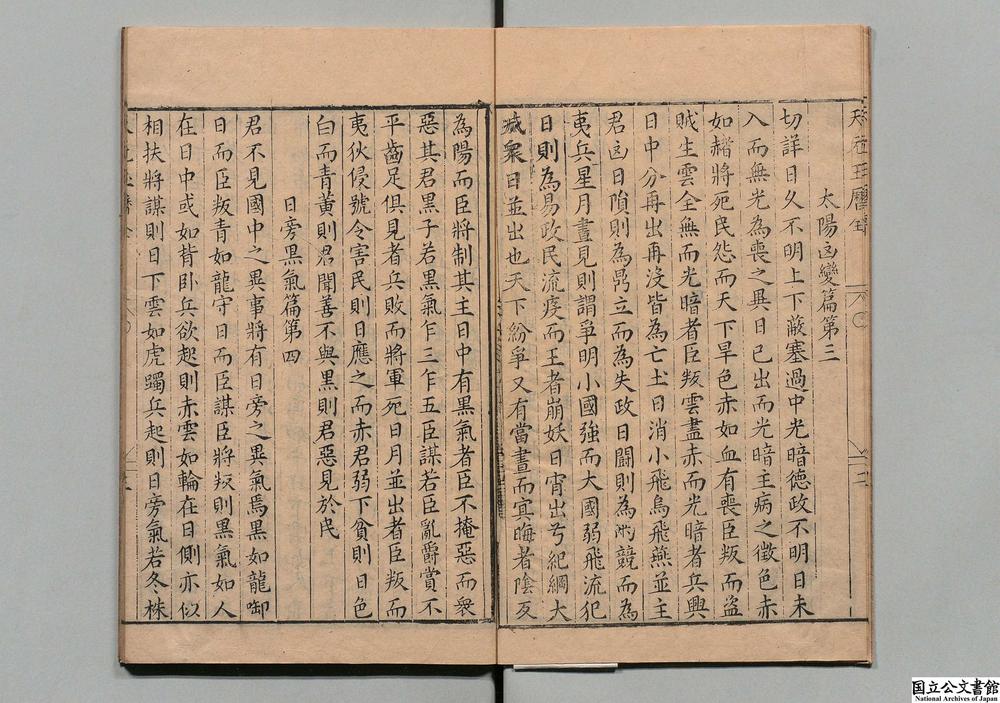 太陽凶變篇第三
切詳日久不明上下蔽塞過中光暗德政不明日未
入而無光為喪之異日已出而光暗主病之徵色赤
如赭將死民怨而天下旱色赤如血有喪臣叛而盜
賊生雲全無而光暗者臣叛雲盡赤而光暗者兵興
日中分再出再沒皆為亡土日消小飛烏飛燕並主
君凶日隕則為鼎立而為失政日鬪則為兩競而為
夷兵星月晝見則謂爭明小國強而大國弱飛流犯
日則為易政民流疫而王者崩妖日宵出兮紀綱大
滅衆日並出也天下紛爭又有當晝而冥晦者陰反
為陽而臣將制其主日中有黑氣者臣不掩惡而衆
惡其君黑子若黑氣乍三乍五臣謀若臣亂爵賞不
平齒足俱見者兵敗而將軍死日月並出者臣叛而
夷伙侵號令害民則日應之而赤君弱下貧則日色
白而青黃則君聞善不與黑則君惡見於民
日旁黑氣篇第四
君不見國中之異事將有日旁之異氣焉黑如龍啣
日而臣叛青如龍守日而臣謀臣將叛則黑氣如人
在日中或如背卧兵欲起則赤雲如輪在日側亦似
相扶將謀則日下雲如虎躅兵起則日旁氣若冬株
国立公文書館
National Archives of Japan